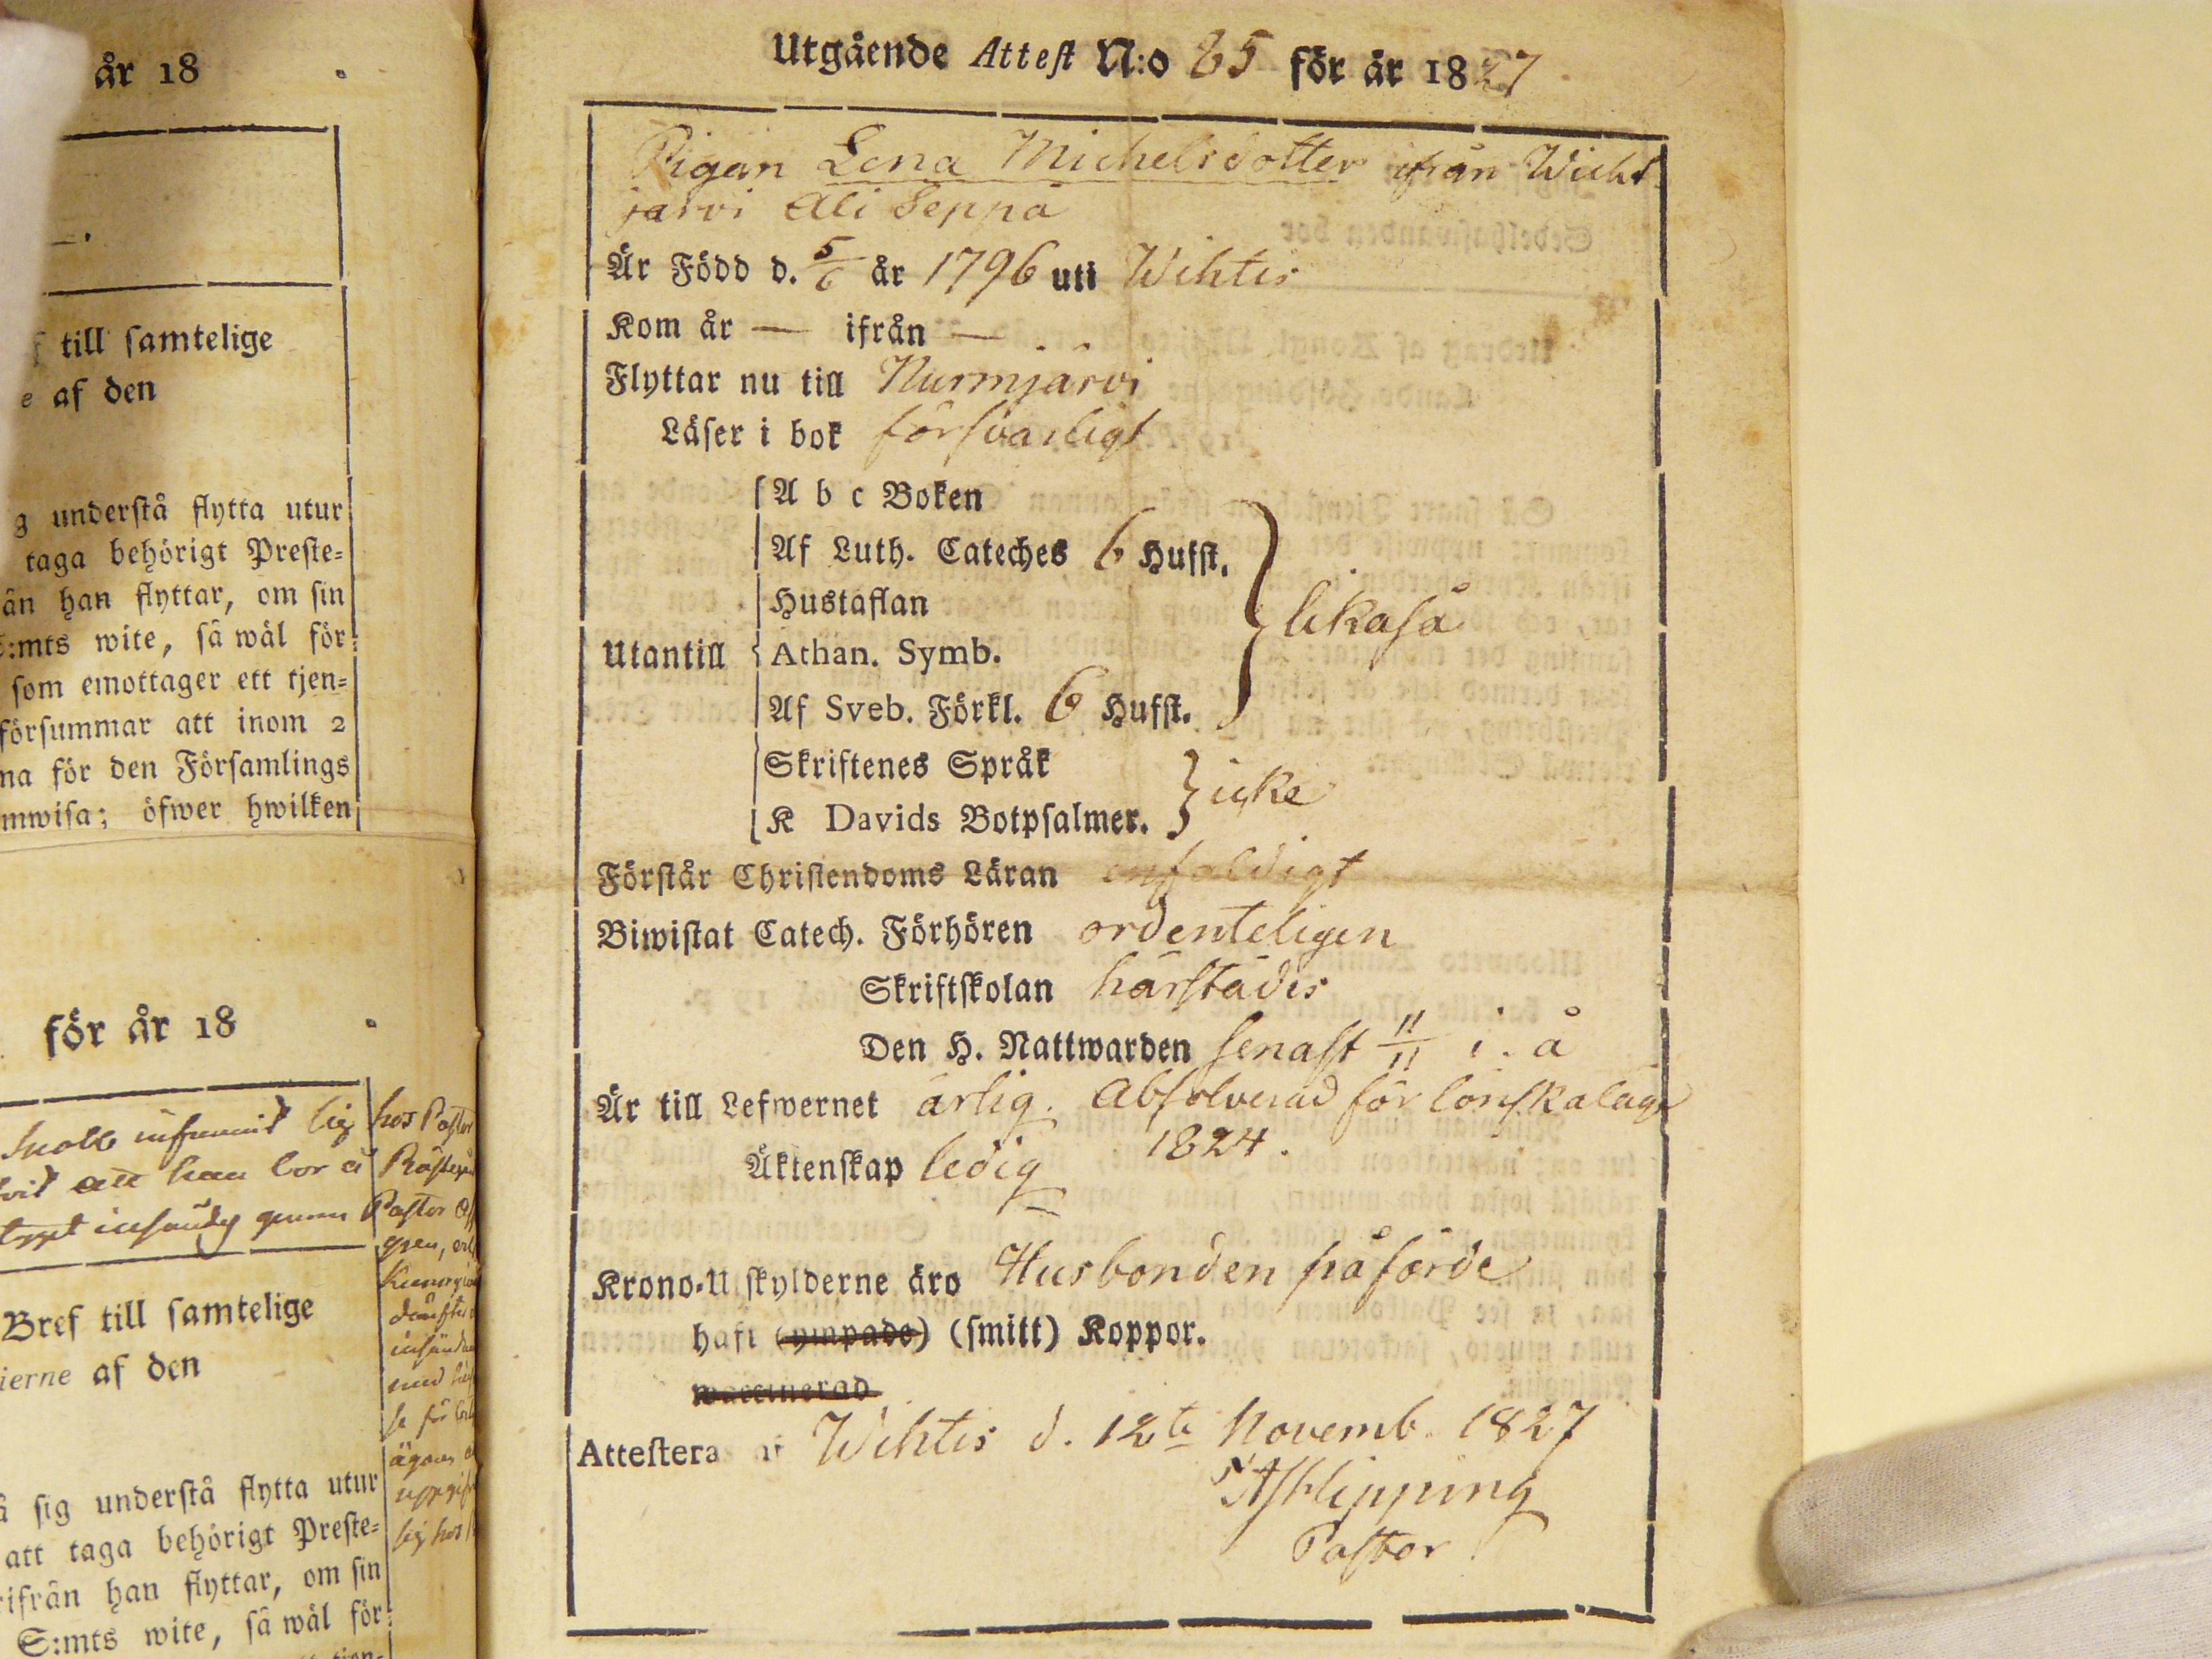 år 18
till samtelige
af den
g understå flytta utur
taga behörigt Preste=
ån han flyttar, om sin
S:mts wite, så wäl för=
som emottager ett tjen=
försummar att inom 2
na för den Församlings
mwisa; öfwer hwilken
för år 18
hos Pastor
att han bor å
Pastor
Bref till samtelige
ierne af den
å sig understå flytta utur
att taga behörigt Preste=
rifrån han flyttar, om sin
S:mts wite, så wäl för=
Utgående Attest N:o 85 för år 1827
Pigan Lena Michelsdotter ifrån Wicht
jarvi Ali Seppä
Är Född d. 5/6 år 1796 uti Wihtis
Kom år — ifrån —
Flyttar nu till Nurmjarvi
Läser i bok försvarligt
A b c Boken
Af Luth. Cateches 6 Hufst.
Hustaflan
likaså
Utantill Athan. Symb.
Af Sveb. Förkl. 6 Hufst.
Skriftenes Språk
icke
K Davids Botpsalmer.
Förstår Christendoms Läran enfaldigt
Biwistat Catech. Förhören ordenteligen
Skriftskolan härstädes
Den H. Nattwarden senast 11/11 i. å
Är till Lefwernet ärlig. Absolverad för lönskaläge
1824.
Äktenskap ledig
Krono-Utskylderne äro Husbonden påförde
haft (ympade) (smitt) Koppor.
waccinerad
Attesteras af Wihtis d. 12te Novemb. 1827
Pastor